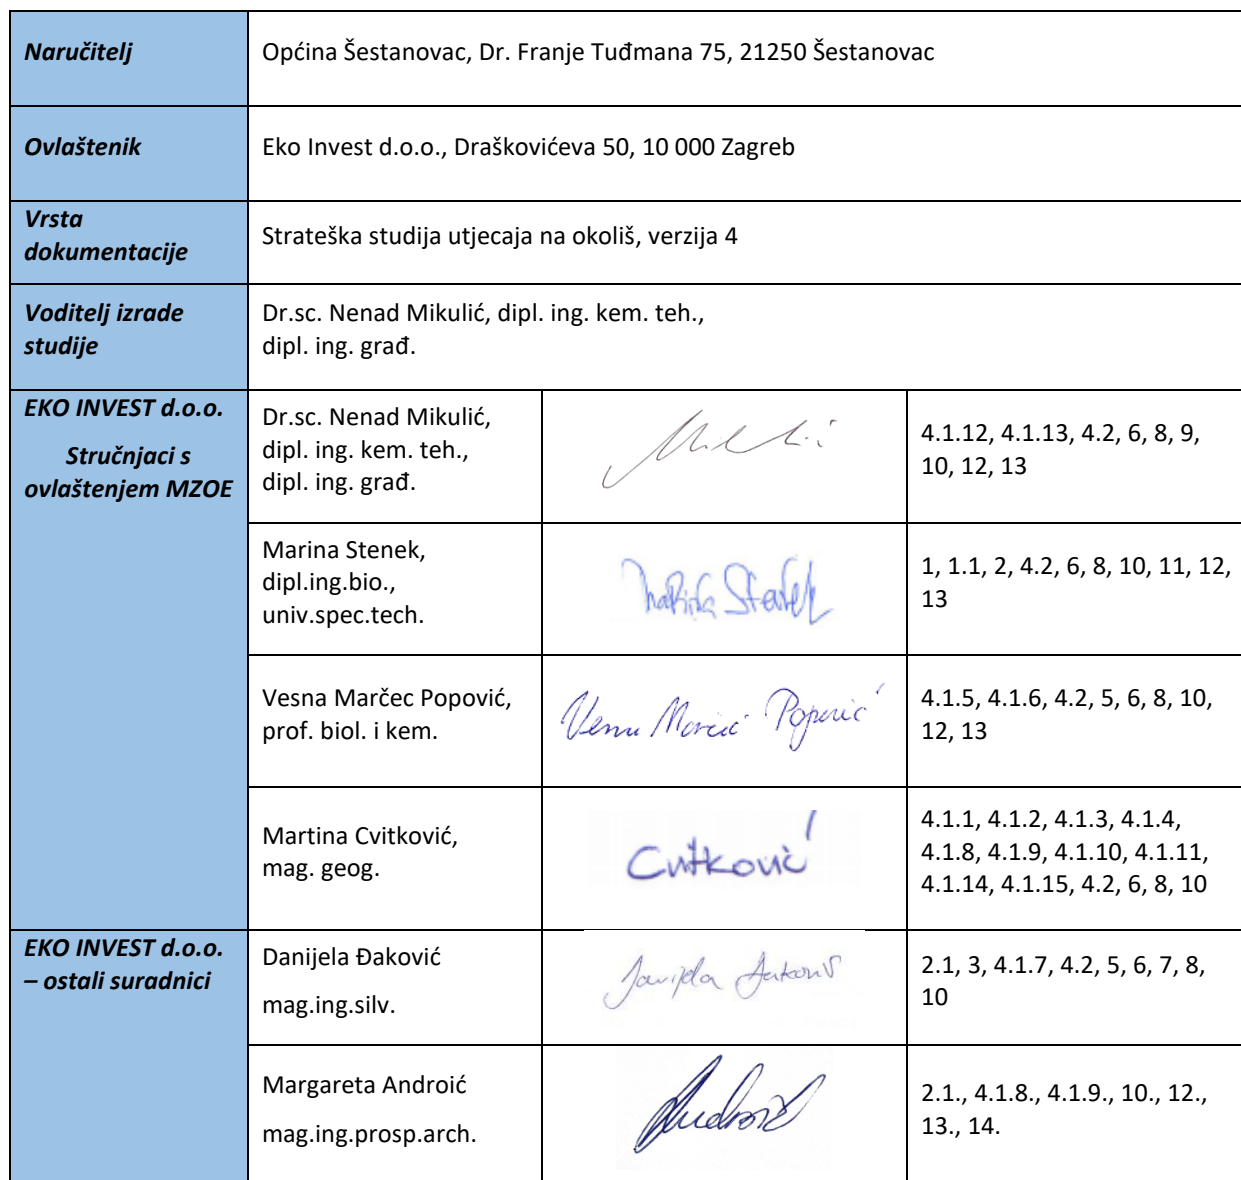 Naručitelj
Općina Šestanovac, Dr. Franje Tuđmana 75, 21250 Šestanovac
Ovlaštenik
Eko Invest d.o.o., Draškovićeva 50, 10 000 Zagreb
Vrsta
dokumentacije
Strateška studija utjecaja na okoliš, verzija 4
Voditelj izrade
studije
Dr.sc. Nenad Mikulić, dipl. ing. kem. teh.,
dipl. ing. građ.
EKO INVEST d.o.o.
Stručnjaci s
ovlaštenjem MZOE
Dr.sc. Nenad Mikulić,
dipl. ing. kem. teh.,
dipl. ing. građ.
4.1.12, 4.1.13, 4.2, 6, 8, 9,
10, 12, 13
Marina Stenek,
dipl.ing.bio.,
univ.spec.tech.
Marina Stenek
1, 1.1, 2, 4.2, 6, 8, 10, 11, 12,
13
Vesna Marčec Popović,
prof. biol. i kem.
Vesna Marčec Popović
4.1.5, 4.1.6, 4.2, 5, 6, 8, 10,
12, 13
Martina Cvitković,
mag. geog.
Cvitković
4.1.1, 4.1.2, 4.1.3, 4.1.4,
4.1.8, 4.1.9, 4.1.10, 4.1.11,
4.1.14, 4.1.15, 4.2, 6, 8, 10
EKO INVEST d.o.o.
– ostali suradnici
Danijela Đaković
mag.ing.silv.
Danijela Đaković
2.1, 3, 4.1.7, 4.2, 5, 6, 7, 8,
10
Margareta Androić
mag.ing.prosp.arch.
Androić
2.1., 4.1.8., 4.1.9., 10., 12.,
13., 14.